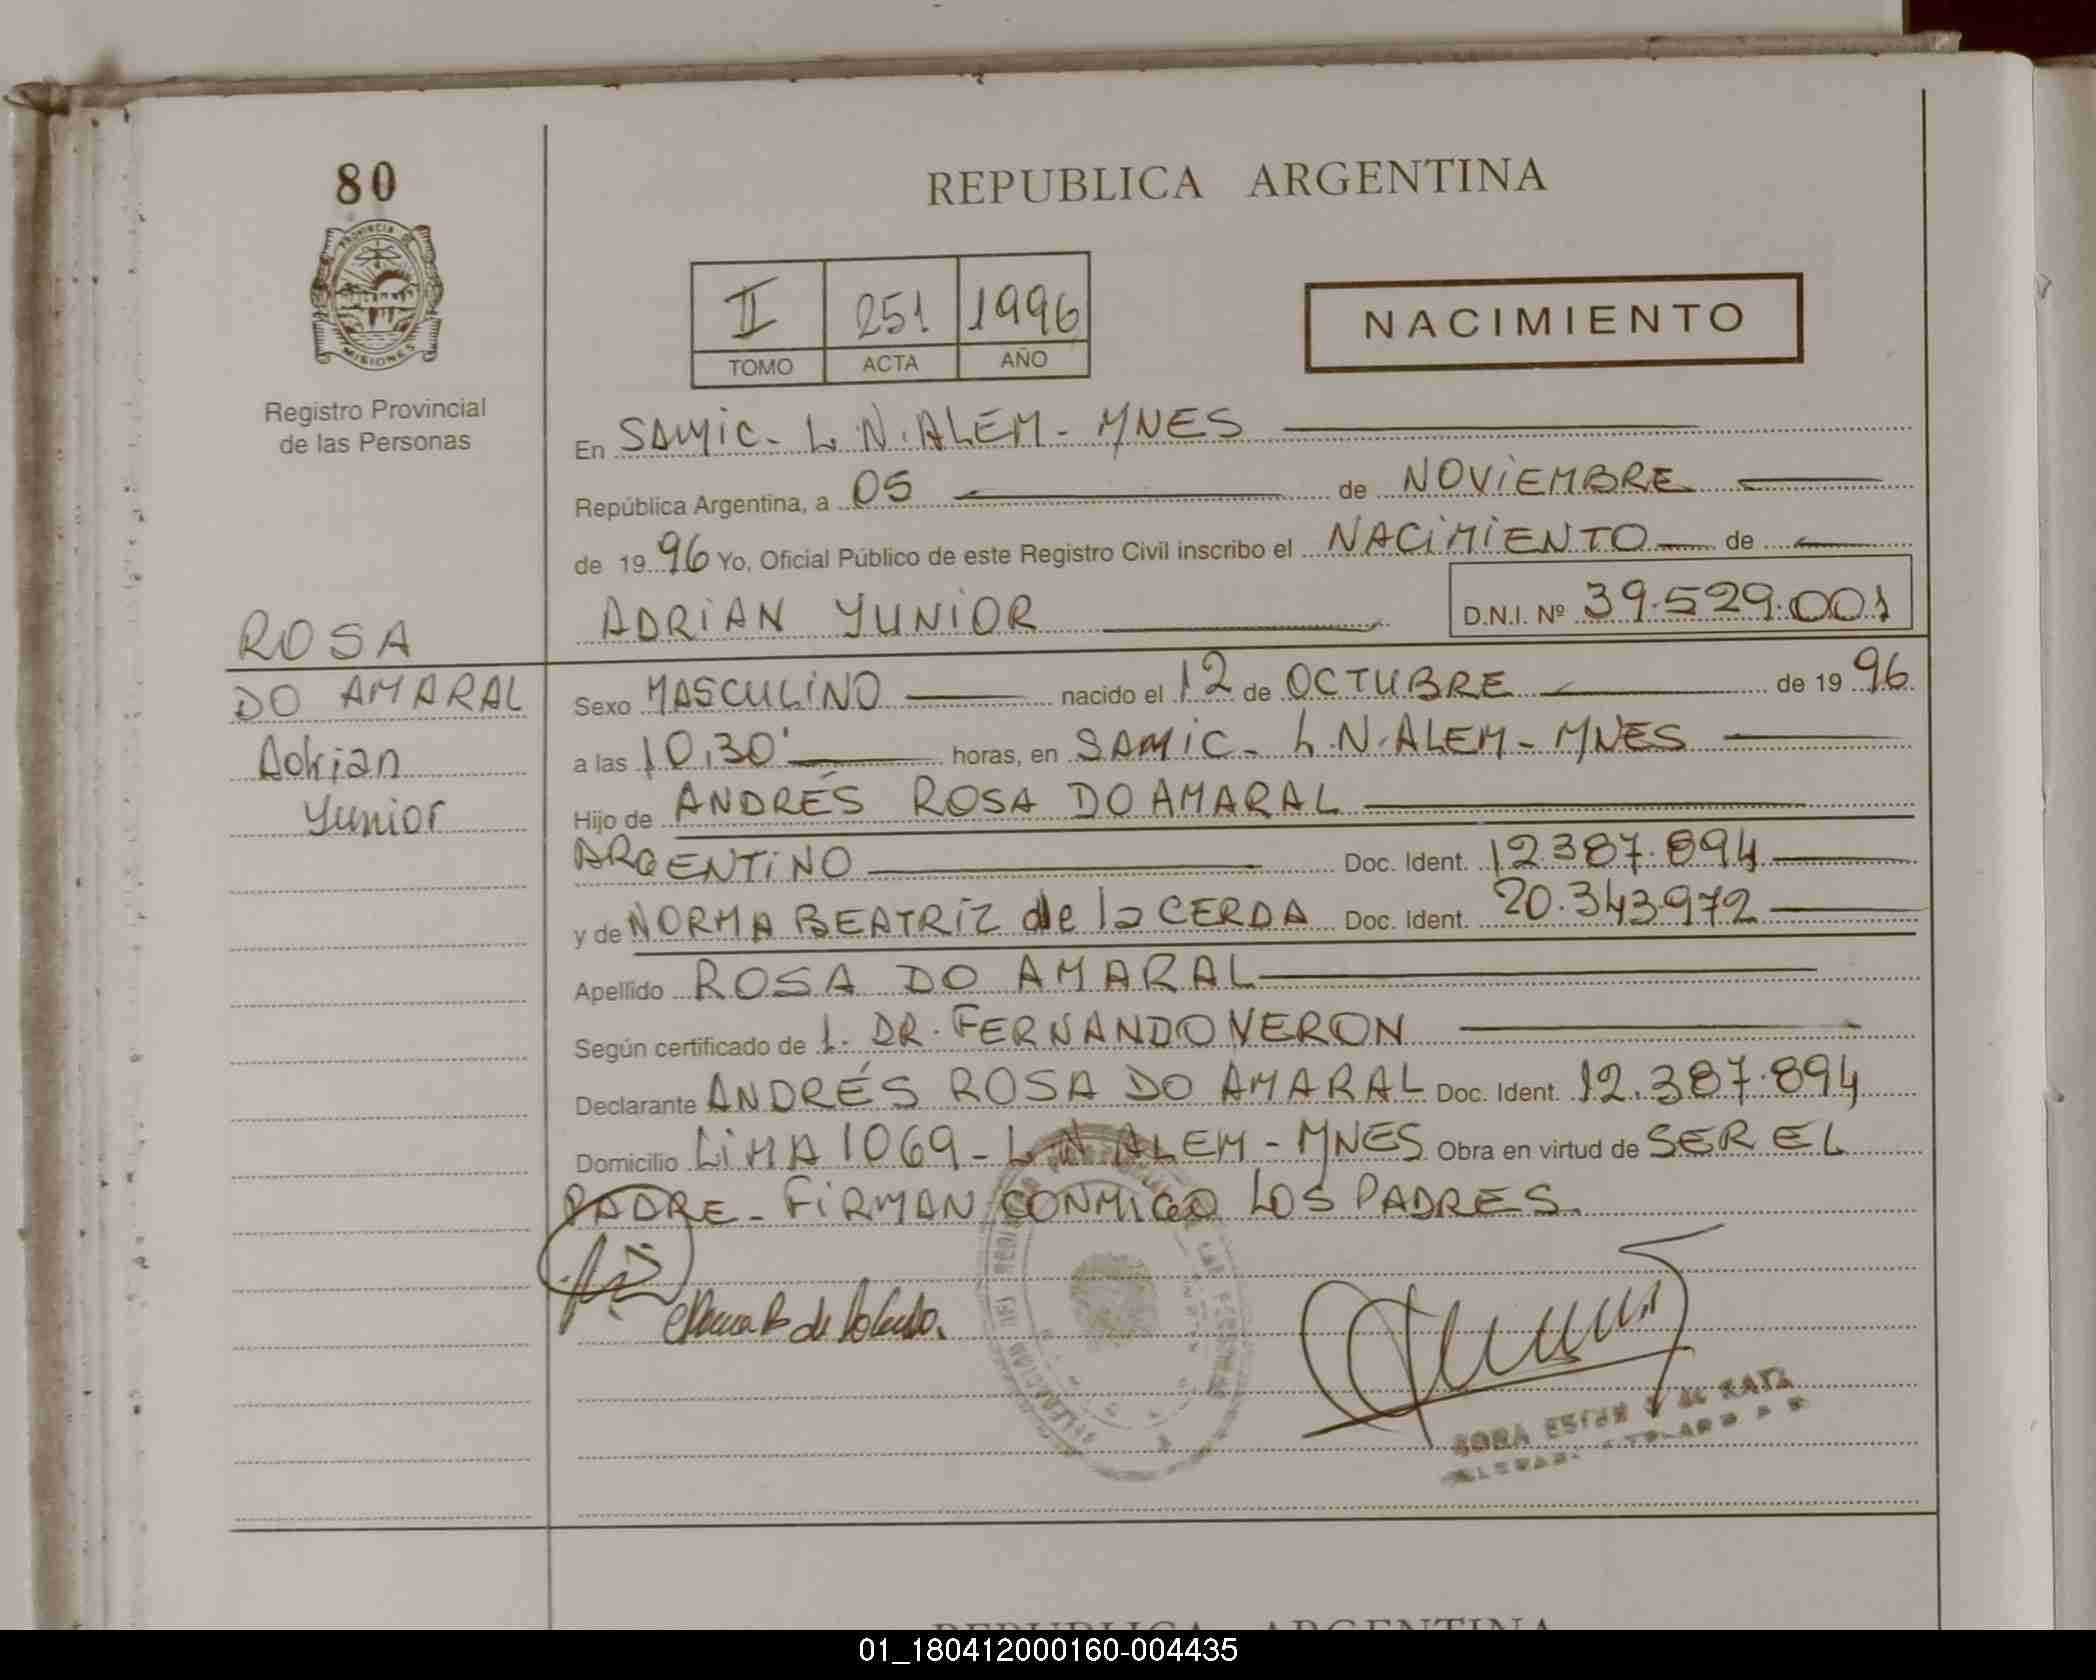 80
PROVINCIA DE
MISIONES
Registro Provincial
de las Personas
ROSA
DO AMARAL
Adrian
Yunior
REPUBLICA ARGENTINA
II 251 1996
TOMO ACTA AÑO
NACIMIENTO
En SAMIC - L.N. ALEM - MNES
República Argentina, a 05 de NOVIEMBRE
de 1996 Yo, Oficial Público de este Registro Civil inscribo el NACIMIENTO de
ADRIAN YUNIOR D.N.I. Nº 39.529.001
Sexo MASCULINO nacido el 12 de OCTUBRE de 1996
a las 10,30' horas, en SAMIC - L.N. ALEM - MNES
Hijo de ANDRÉS ROSA DO AMARAL
ARGENTINO Doc. Ident. 12.387.894
y de NORMA BEATRIZ de la CERDA Doc. Ident. 20.343.972
Apellido ROSA DO AMARAL
Según certificado de 1. DR. FERNANDO VERON
Declarante ANDRÉS ROSA DO AMARAL Doc. Ident. 12.387.894
Domicilio LIMA 1069 - L.N. ALEM - MNES Obra en virtud de SER EL
PADRE - FIRMAN CONMIGO LOS PADRES.
REPUBLICA ARGENTINA
01_180412000160-004435